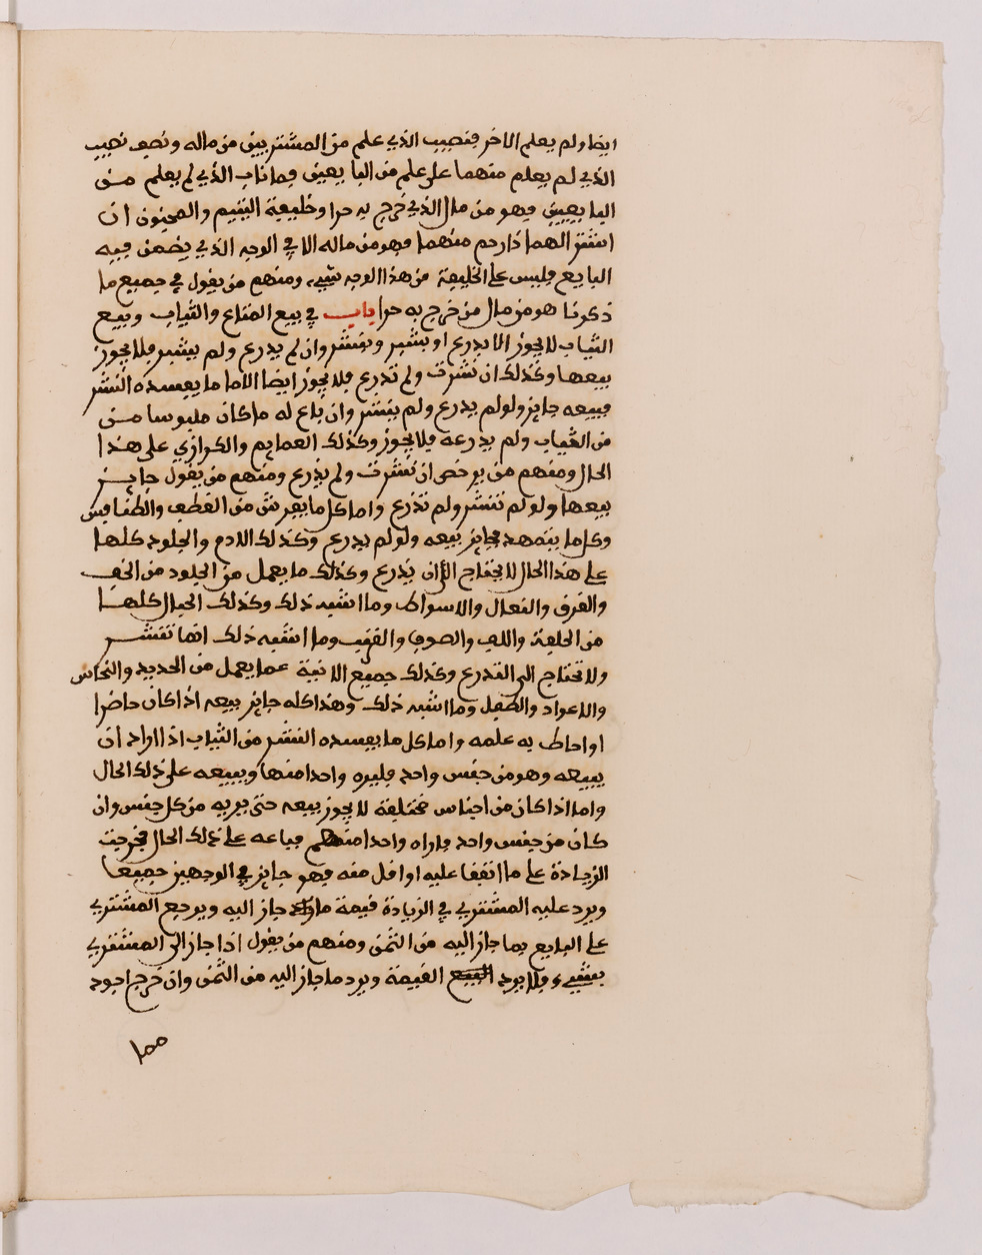 ايضا ولم يعلم الاخر فنصيب الذي علم من المشتريين من ماله ونصف نصيب
الذي لم يعلم منهما على علم من البايعين وما ناب الذي لم يعلم من
البايعيين فهو من مال الذي خرج به حرا وخليفة اليتيم والمجنون ان
اشترا لهما ذا رحم منهما فهو من ماله الا في الوجه الذي يضمن فيه
البايع فليس على الخليفة من هذا الوجه شيء ومنهم من يقول في جميع ما
ذكرنا هو من مال من خرج به حرا باب في بيع المتاع والثياب وبيع
الثياب لا يجوز الا بذرع او بشبر وبنشر وان لم يذرع ولم يشبر فلا يجوز
بيعها وكذلك ان نشرت ولم تذرع فلا يجوز ايضا الا ما يفسده النشر
فبيعه جايز ولو لم يذرع ولم ينشر وان باع له ما كان ملبوسا من
من الثياب ولم يذرعه فلا يجوز وكذلك العمايم والكرازي على هذا
الحال ومنهم من يرخص ان نشرت ولم تذرع ومنهم من يقول جايز
بيعها ولو لم تنشر ولم تذرع واما كل ما يفرش من القطف والطنافيس
وكل ما يتمهد فجايز بيعه ولو لم يذرع وكذلك الادم والجلود كلها
على هذا الحال لا يحتاج الى ان يذرع وكذلك ما يعمل من الجلود من الخف
والقرق والنعال والاسواط وما اشبه ذلك وكذلك الحبال كلها
من الحلفة والليف والصوف والقنب وما اشبه ذلك انما تنشر
ولا تحتاج الى التذرع وكذلك جميع الانية عما يعمل من الحديد والنحاس
والاعواد والطفل وما اشبه ذلك وهذا كله جايز بيعه اذا كان حاضرا
او احاط به علمه واما كل ما يفسده النشر من الثياب اذا اراد ان
يبيعه وهو من جنس واحد فليره واحدا منها ويبيعه على ذلك الحال
واما اذا كان من اجناس مختلفة لا يجوز بيعه حتى يريه من كل جنس وان
كان من جنس واحد فاراه واحدا منهم فباعه على ذلك الحال فخرجت
الزيادة على ما اتفقا عليه او اقل منه فهو جايز في الوجهين جميعا
ويرد عليه المشتري في الزيادة قيمة ما جاز اليه ويرجع المشتري
على البايع بما جاز اليه من الثمن ومنهم من يقول اذا جاز الى المشتري
بشيء فلا يرد القيمة ويرد ما جاز اليه من الثمن وان خرج اجود